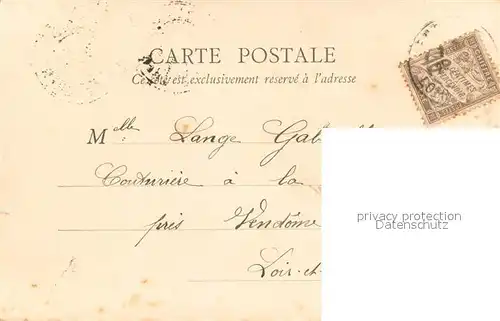 CARTE POSTALE
Ce côté est exclusivement reservé à l'adresse
Melle Lange Gab
Couturière à la
près Vendôme
Loir-et-
privacy protection
Datenschutz